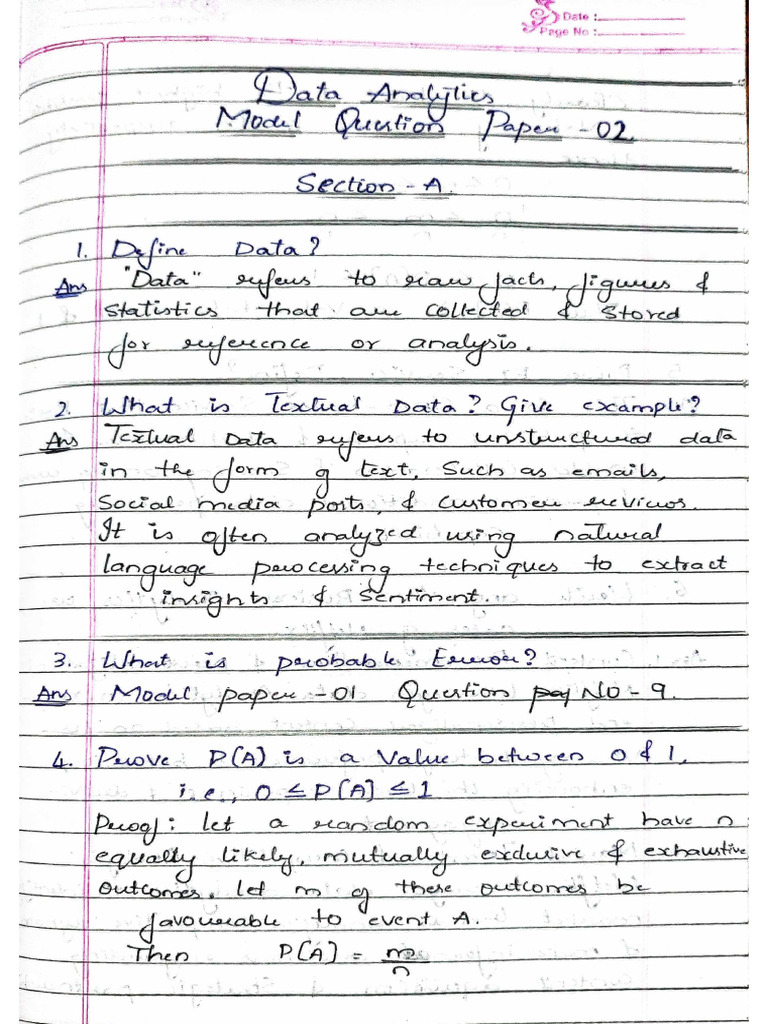 Date :
Page No :
Data Analytics
Model Question Paper - 02.
Section - A.
1. Define Data?
Ans "Data" refers to raw facts, figures &
statistics that are collected & stored
for reference or analysis.
2. What is Textual Data? Give example?
Ans Textual Data refers to unstructured data
in the form of text, Such as emails,
social media posts, & customer reviews.
It is often analyzed using natural
language processing techniques to extract
insights & sentiment.
3. What is probable Error?
Ans Model paper - 01 Question No - 9.
4. Prove P[A] is a value between 0 & 1.
i.e., 0 ≤ P[A] ≤ 1
Proof: let a random experiment have n
equally likely, mutually exclusive & exhaustive
outcomes. let m of these outcomes be
favourable to event A.
Then P[A] = m/n